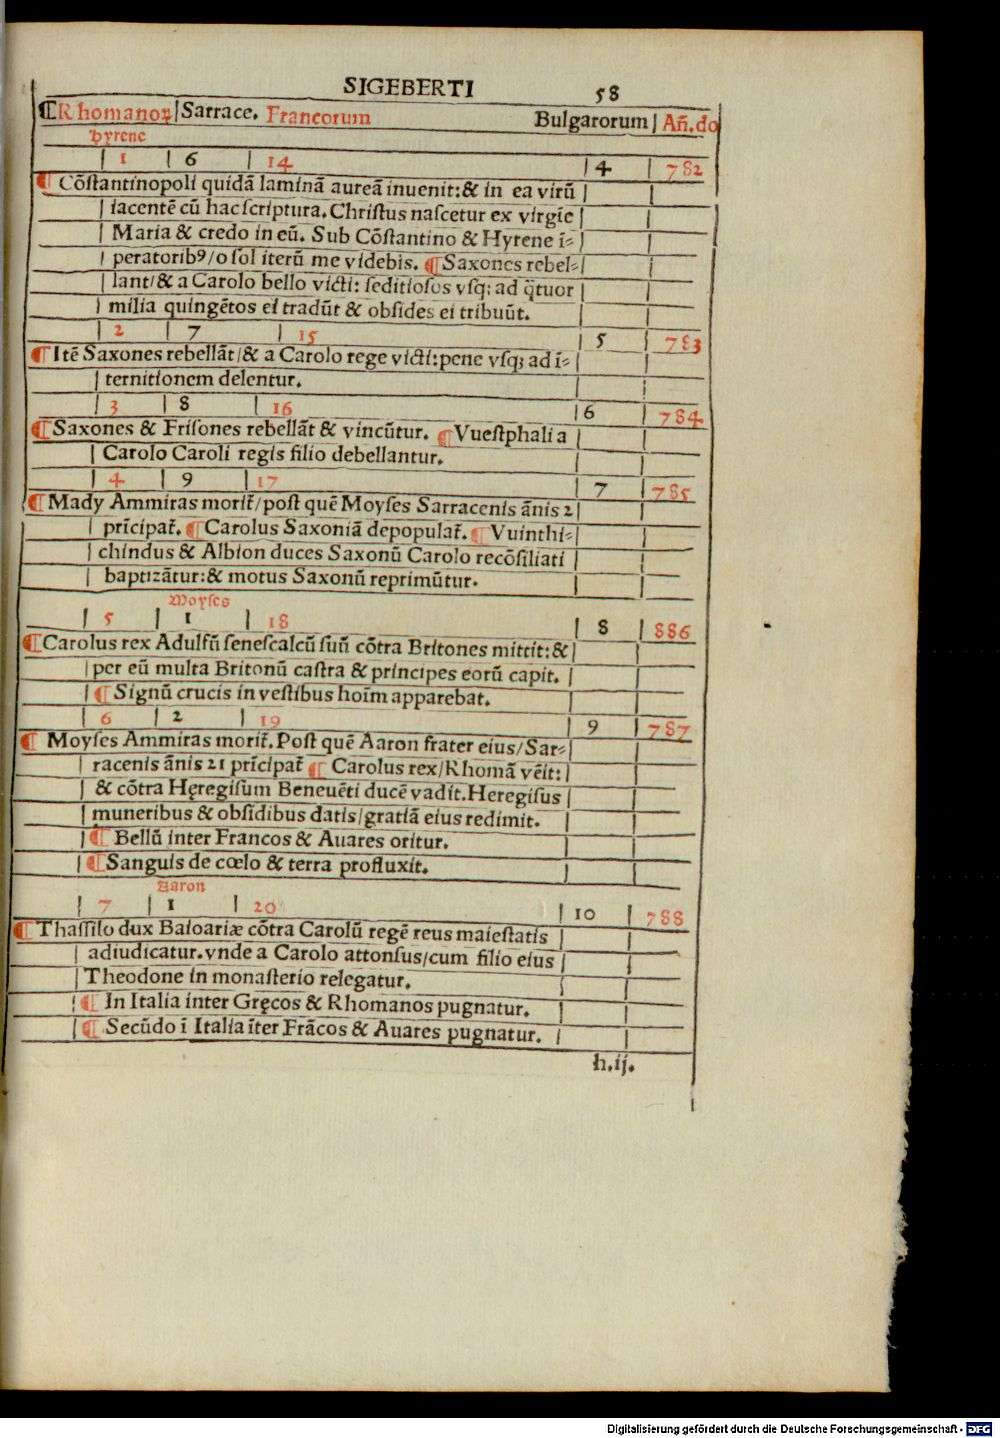 SIGEBERTI 58
¶Rhomanoꝝ|Sarrace. Francorum Bulgarorum| Añ.do
Hyrene
| 1 | 6 | 14 | 4 | 782
¶ Cõstantinopoli quidã laminã aureã inuenit:& in ea virũ
iacentẽ cũ hac scriptura. Christus nascetur ex virgĩe
Maria & credo in eũ. Sub Cõstantino & Hyrene ĩ⸗
peratoribꝰ/o sol iterũ me videbis. ¶Saxones rebel⸗
lant/& a Carolo bello victi: seditiosos vsq; ad q̃tuor
milia quingẽtos ei tradũt & obsides ei tribuũt.
| 2 | 7 | 15 | 5 | 783
¶Itẽ Saxones rebellãt/& a Carolo rege victi:pene vsq; ad ĩ⸗
ternitionem delentur.
| 3 | 8 | 16 | 6 | 784
¶Saxones & Frisones rebellãt & vincũtur. ¶Vuestphali a
Carolo Caroli regis filio debellantur.
| 4 | 9 | 17 | 7 | 785
¶Mady Ammiras morit̃/post quẽ Moyses Sarracenis ãnis 2
prĩcipat̃. ¶Carolus Saxoniã depopulat̃. ¶Vuinthi⸗
chindus & Albion duces Saxonũ Carolo recõsiliati
baptizãtur:& motus Saxonũ reprimũtur.
Moyses
| 5 | 1 | 18 | 8 | 886
¶Carolus rex Adulfũ senescalcũ suũ cõtra Britones mittit:&
per eũ multa Britonũ castra & principes eorũ capit.
¶Signũ crucis in vestibus hoĩm apparebat.
| 6 | 2 | 19 | 9 | 787
¶ Moyses Ammiras morit̃. Post quẽ Aaron frater eius/Sar⸗
racenis ãnis 21 prĩcipat̃ ¶ Carolus rex/Rhomã vẽit:
& cõtra Hęregisum Beneuẽti ducẽ vadit.Heregisus
muneribus & obsidibus datis/gratiã eius redimit.
¶ Bellũ inter Francos & Auares oritur.
¶Sanguis de cœlo & terra profluxit.
Aaron
| 7 | 1 | 20 | 10 | 788
¶Thassilo dux Baioariæ cõtra Carolũ regẽ reus maiestatis
adiudicatur.vnde a Carolo attonsus/cum filio eius
Theodone in monasterio relegatur.
¶ In Italia inter Gręcos & Rhomanos pugnatur.
¶ Secũdo ĩ Italia ĩter Frãcos & Auares pugnatur.
h.ij.
Digitalisierung gefördert durch die Deutsche Forschungsgemeinschaft - DFG